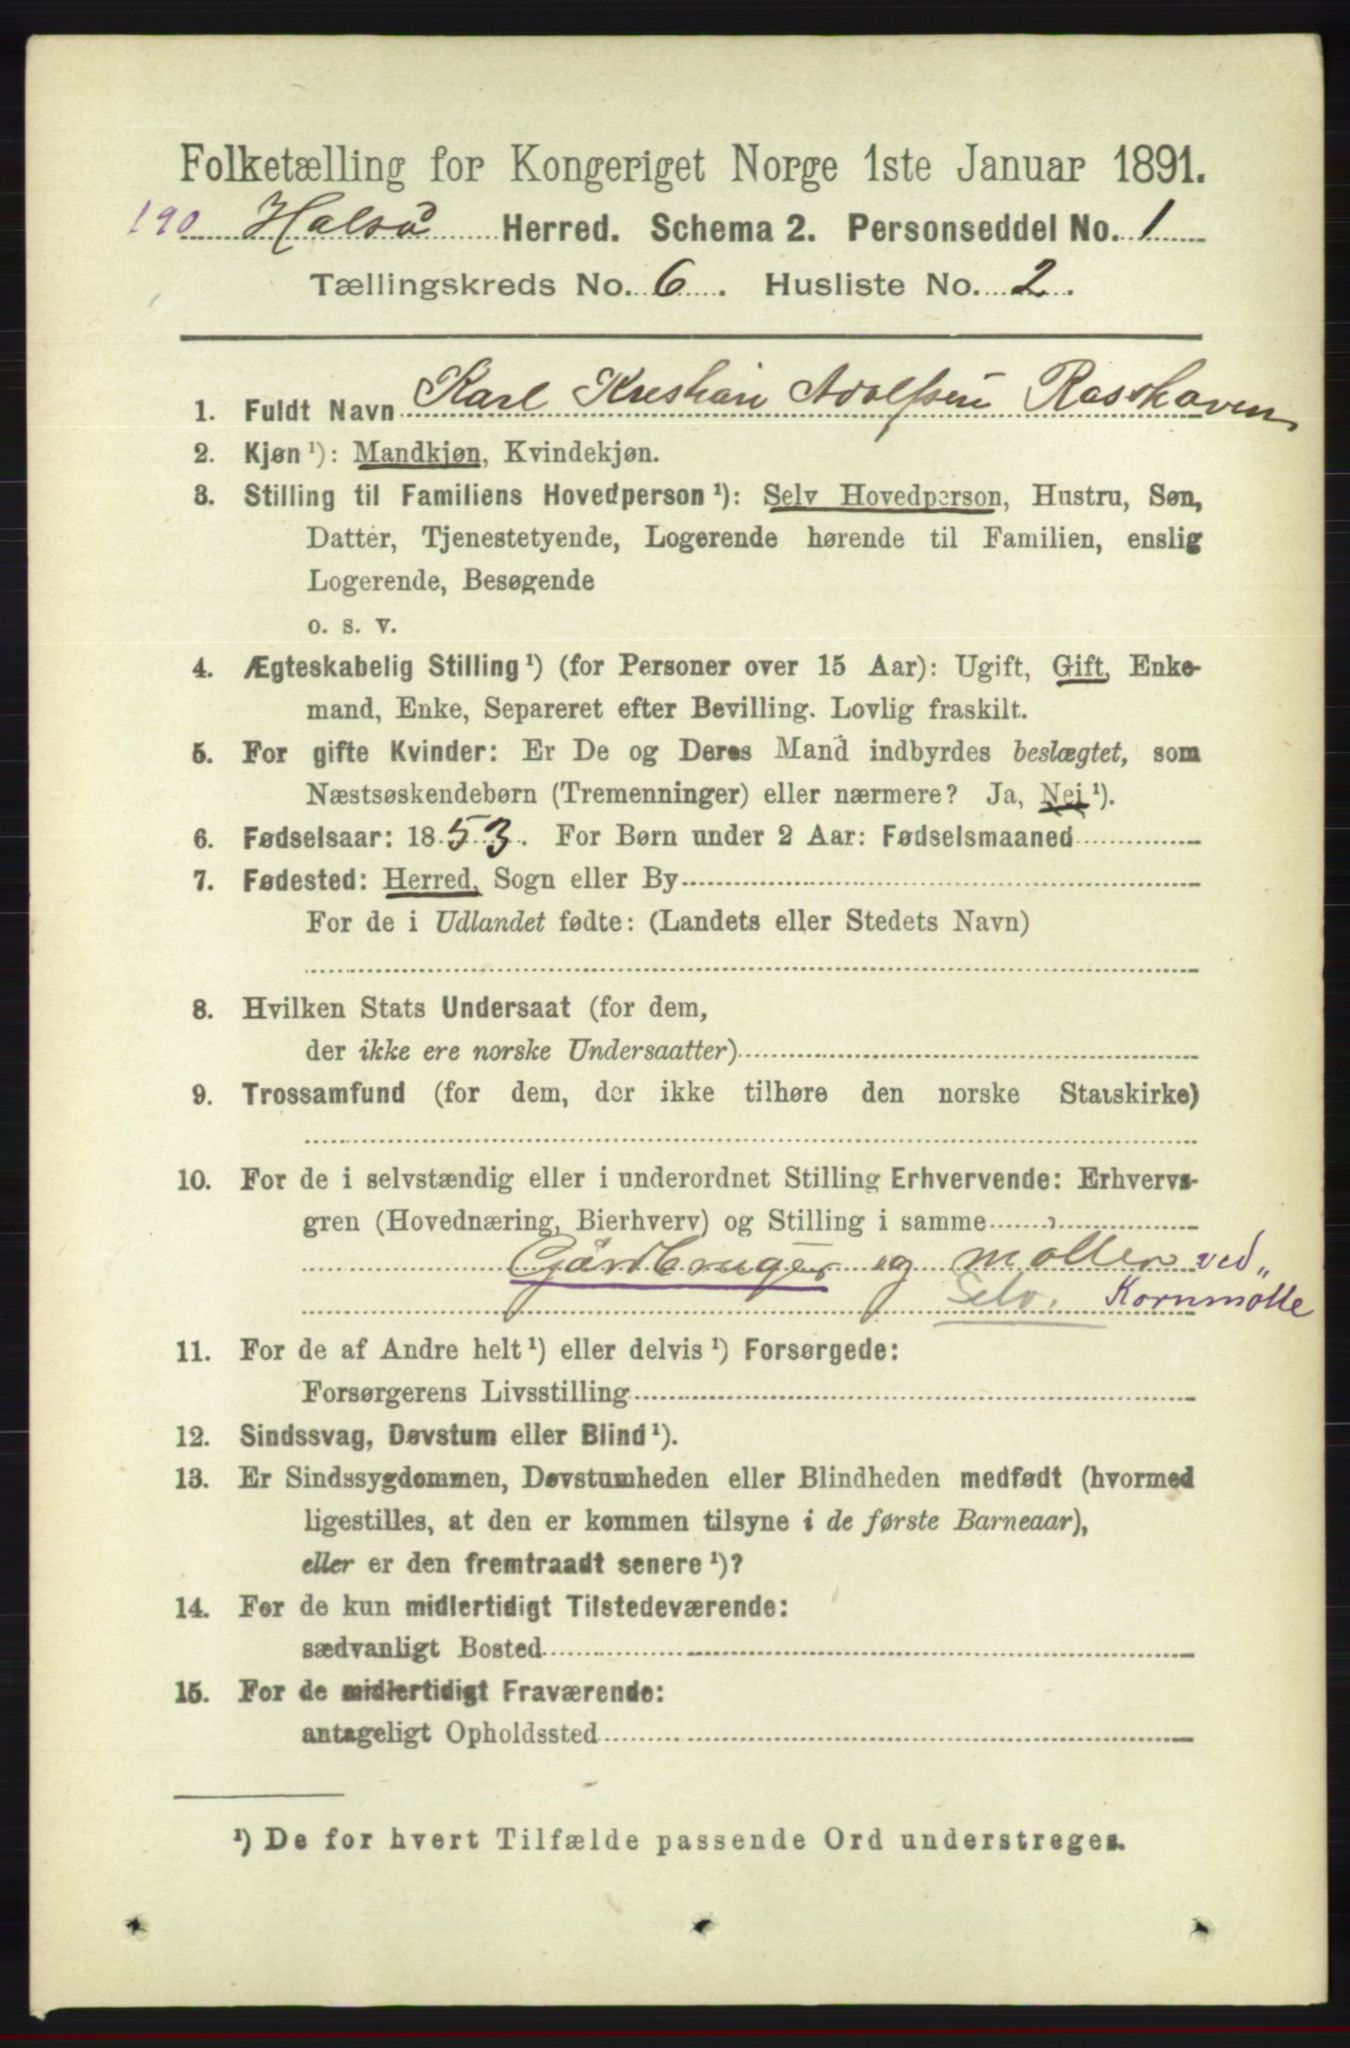 Folketælling for Kongeriget Norge 1ste Januar 1891.
190 Halså Herred. Schema 2. Personseddel No. 1
Tællingskreds No. 6. Husliste No. 2.
1. Fuldt Navn Karl Kristian Adolfsen Rosshaven
2. Kjøn¹): Mandkjøn, Kvindekjøn.
3. Stilling til Familiens Hovedperson¹): Selv Hovedperson, Hustru, Søn,
Datter, Tjenestetyende, Logerende hørende til Familien, enslig
Logerende, Besøgende
o. s. v.
4. Ægteskabelig Stilling¹) (for Personer over 15 Aar): Ugift, Gift, Enke-
mand, Enke, Separeret efter Bevilling. Lovlig fraskilt.
5. For gifte Kvinder: Er De og Deres Mand indbyrdes beslægtet, som
Næstsøskendebørn (Tremenninger) eller nærmere? Ja, Nei¹).
6. Fødselsaar: 1853. For Børn under 2 Aar: Fødselsmaaned
7. Fødested: Herred, Sogn eller By
For de i Udlandet fødte: (Landets eller Stedets Navn)
8. Hvilken Stats Undersaat (for dem,
der ikke ere norske Undersaatter)
9. Trossamfund (for dem, der ikke tilhøre den norske Statskirke)
10. For de i selvstændig eller i underordnet Stilling Erhvervende: Erhvervs-
gren (Hovednæring, Bierhverv) og Stilling i samme
Gårdbruger og møller ved
Selv. Kornmølle
11. For de af Andre helt¹) eller delvis¹) Forsørgede:
Forsørgerens Livsstilling
12. Sindssvag, Døvstum eller Blind¹).
13. Er Sindssygdommen, Døvstumheden eller Blindheden medfødt (hvormed
ligestilles, at den er kommen tilsyne i de første Barneaar),
eller er den fremtraadt senere¹)?
14. For de kun midlertidigt Tilstedeværende:
sædvanligt Bosted
15. For de midlertidigt Fraværende:
antageligt Opholdssted
¹) De for hvert Tilfælde passende Ord understreges.